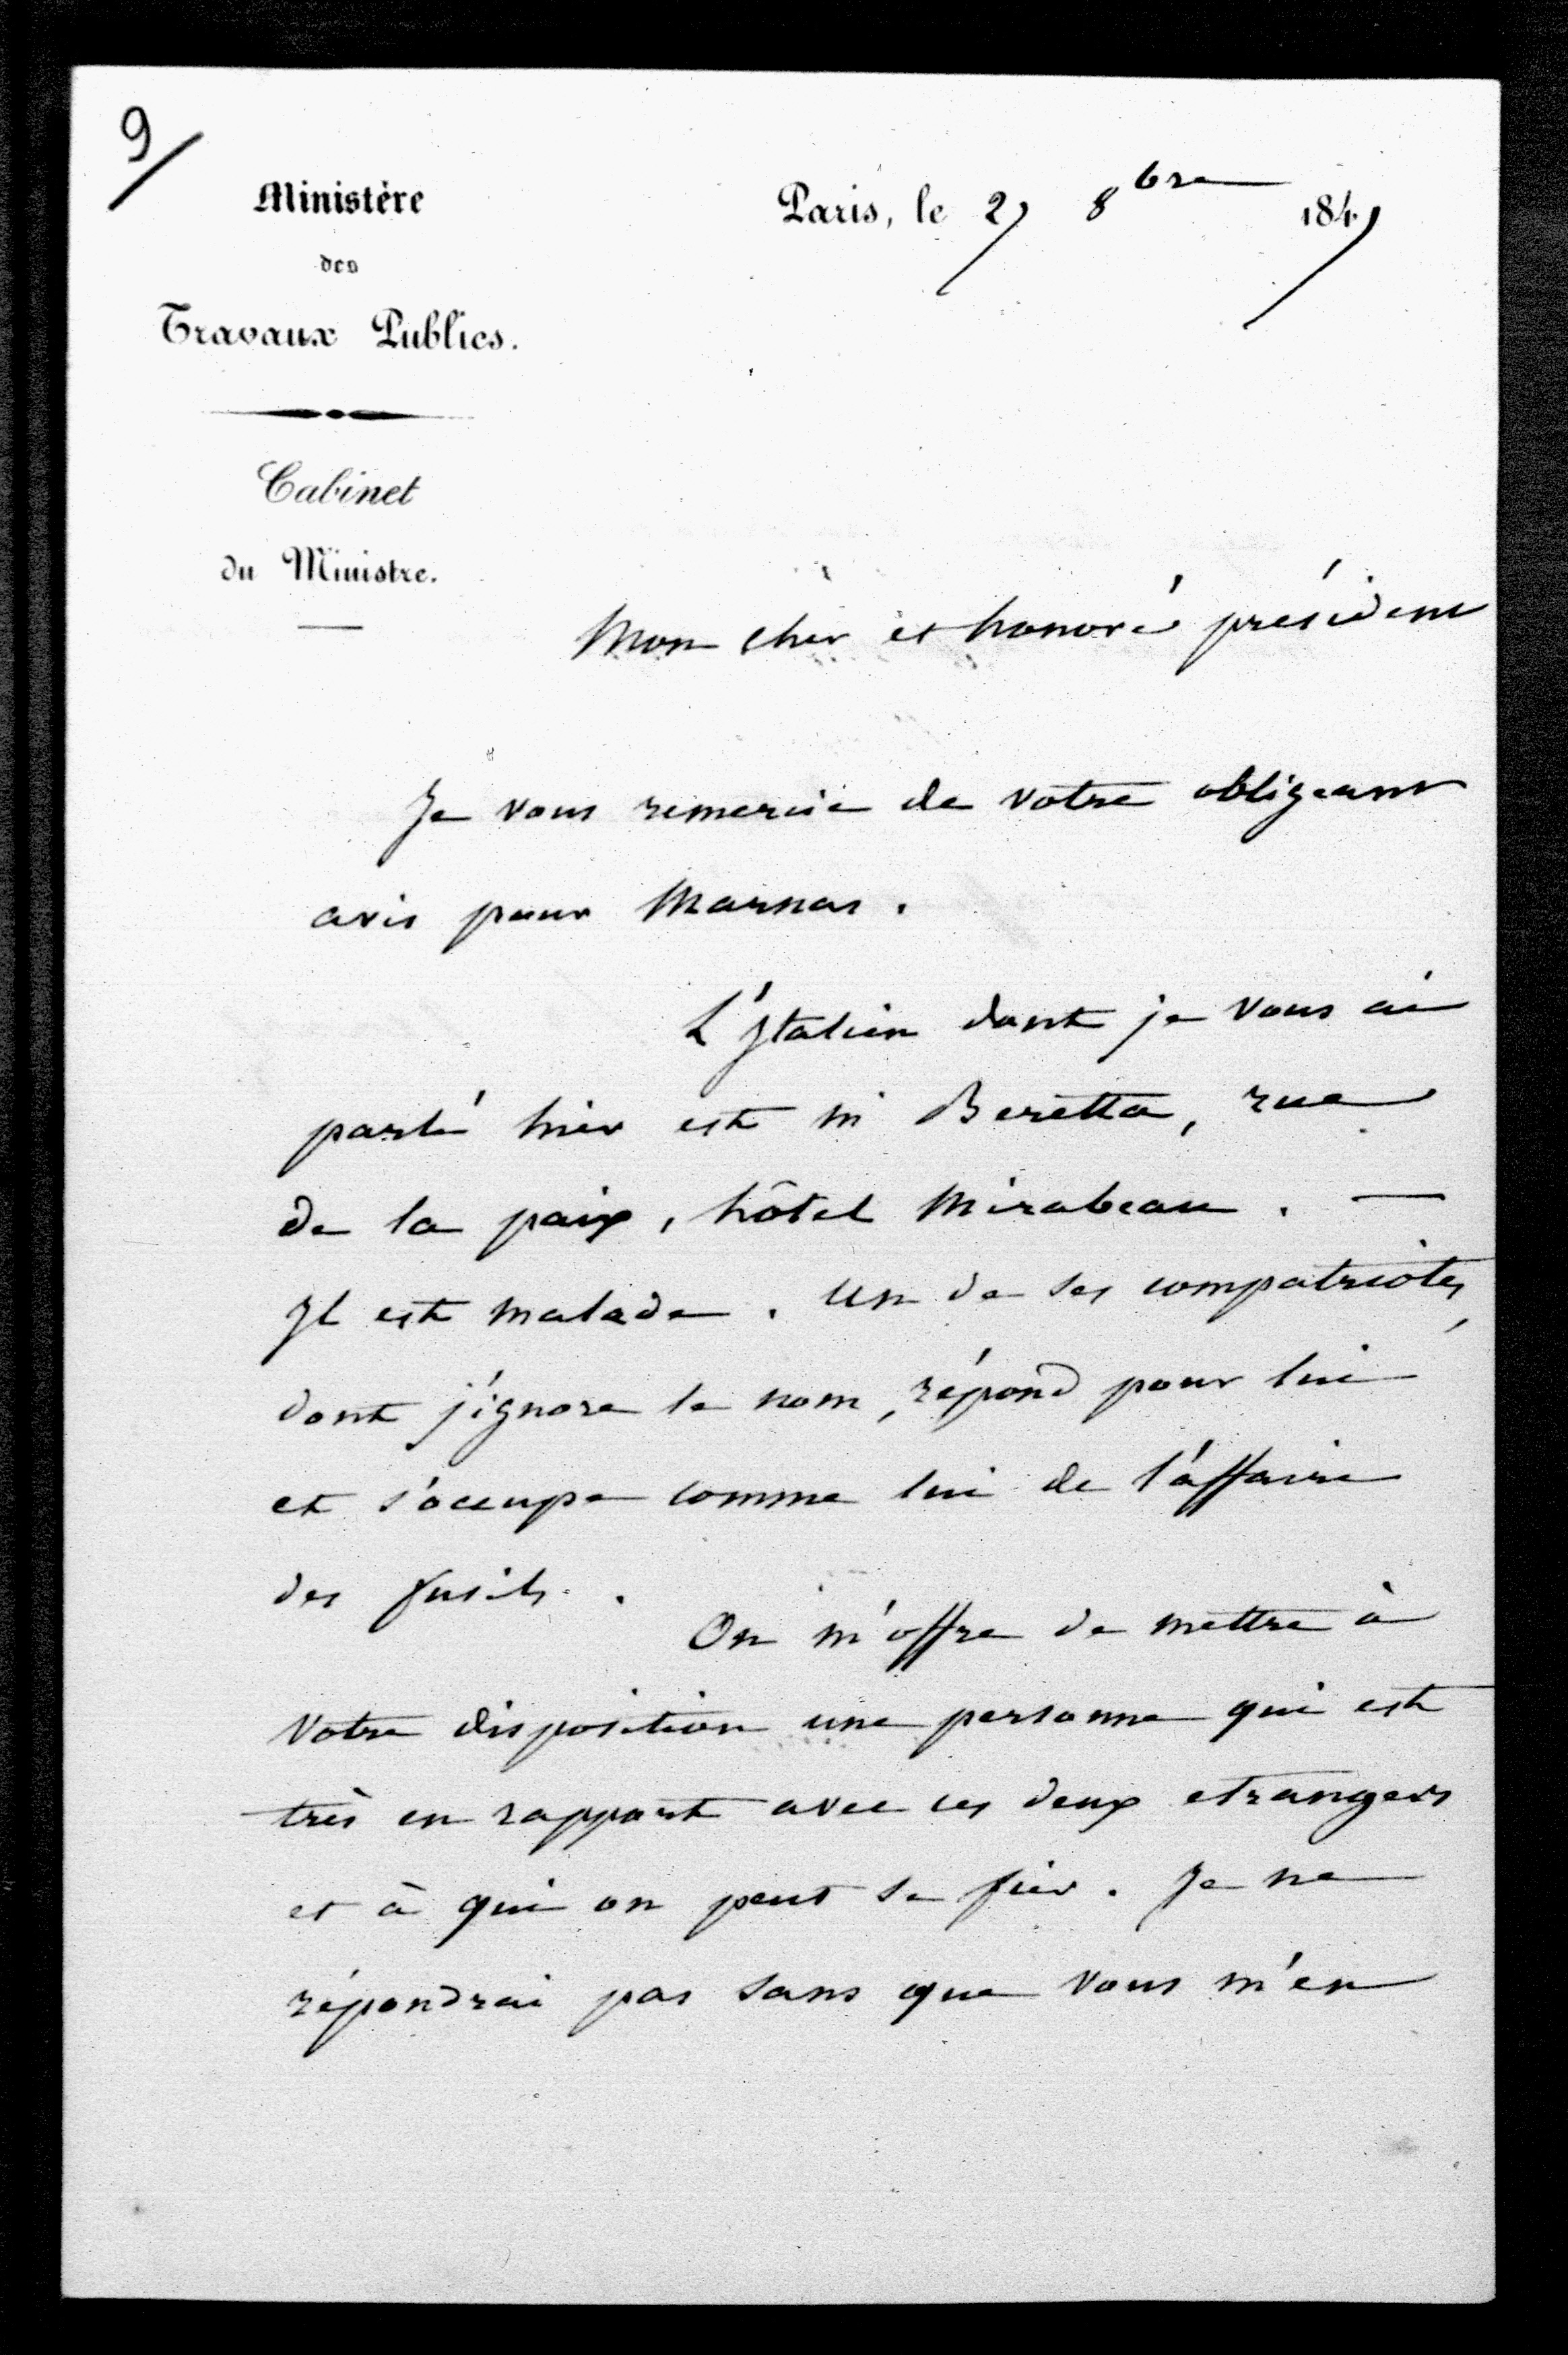 9/
Ministère
des
Travaux Publics.
Cabinet
du Ministre.
Paris, le 27 8bre 1847
Mon cher et honoré président
Je vous remercie de votre obligeant
avis pour Marnas.
L'Italien dont je vous ai
parlé hier est M Beretta, rue
de la paix, hôtel Mirabeau. —
Il est malade. Un de ses compatriotes,
dont j'ignore le nom, répond pour lui
et s'occupe comme lui de l'affaire
des fusils.
On m'offre de mettre à
votre disposition une personne qui est
très en rapport avec ces deux etrangers
et à qui on peut se fier. Je ne
répondrai pas sans que vous m'en